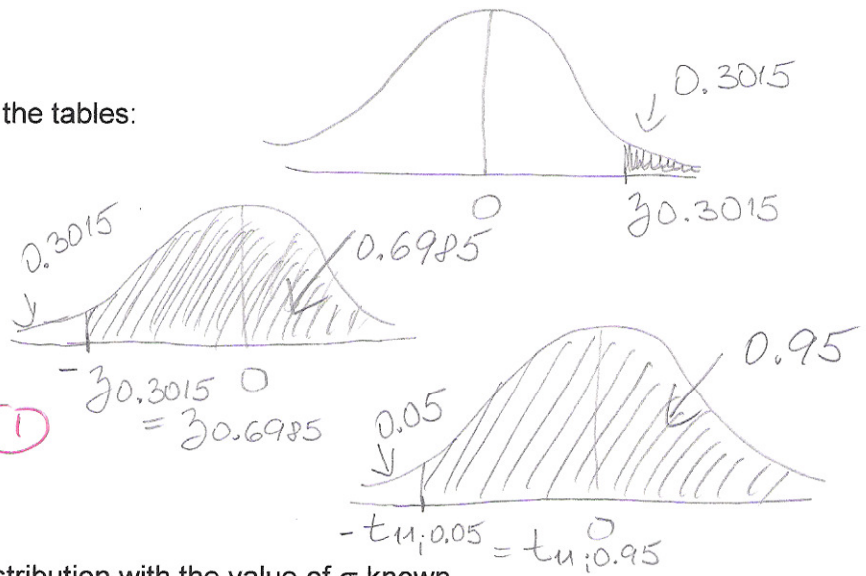 the tables:
0.3015
0
z0.3015
0.3015
0.6985
-z0.3015 0
= z0.6985
1
0.95
0.05
-t11;0.05 0
= t11;0.95
stribution with the value of σ known